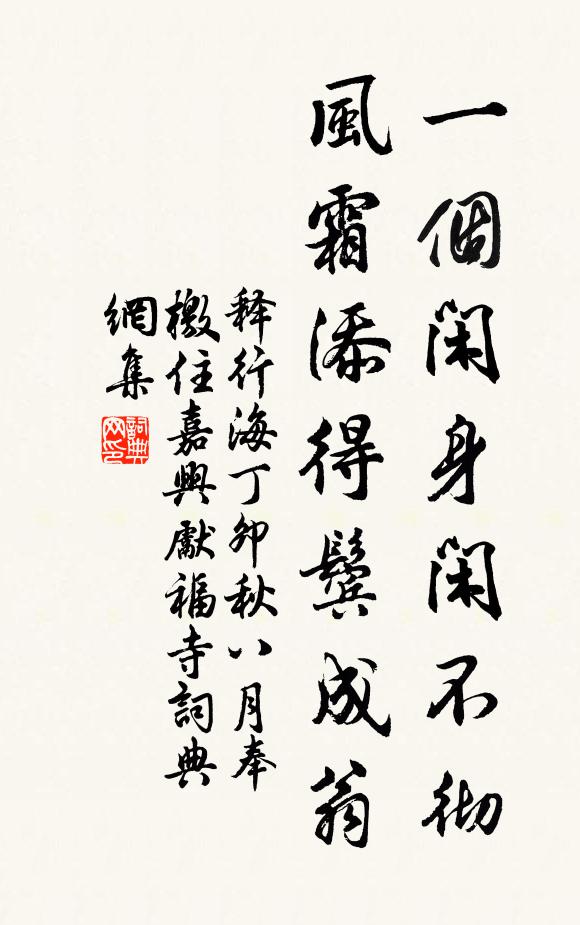 一個閑身閑不彻
風霜添得鬢成翁
释行海丁卯秋八月奉
檄住嘉興獻福寺詞典
網集
詞典网印